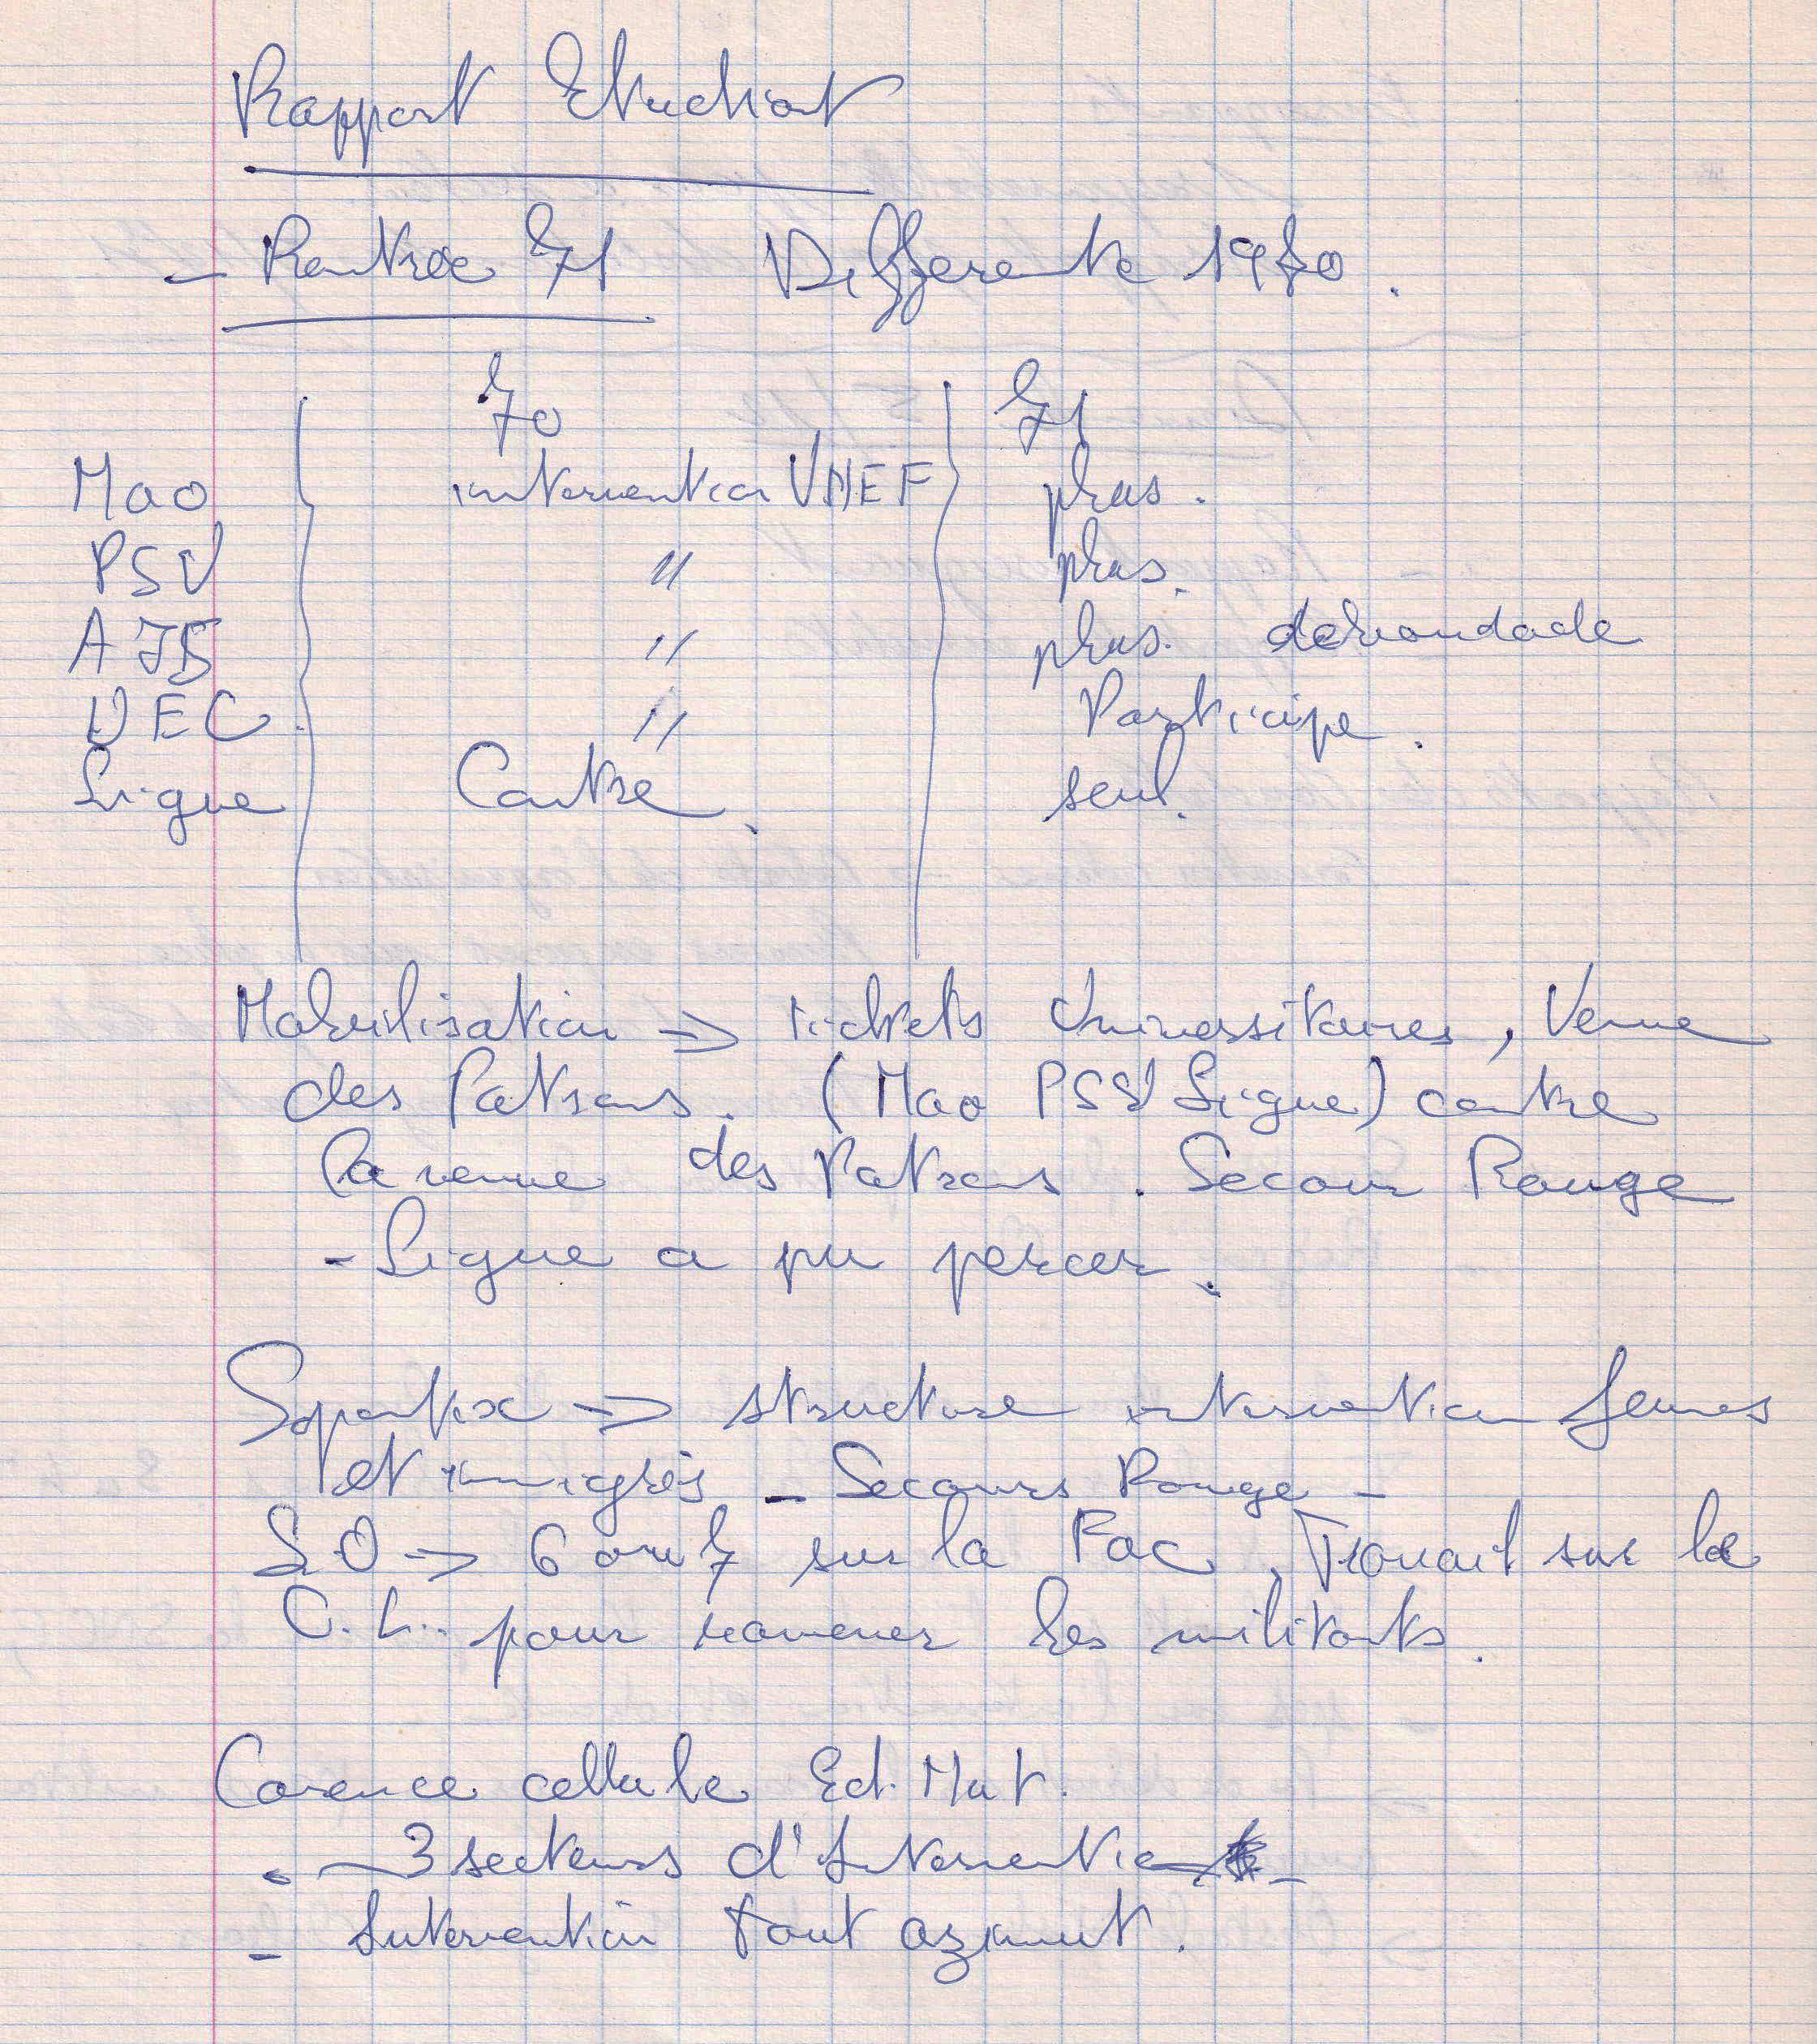 Rapport Etudiant
- Rentrée 71 Differente 1970.
70 71
Mao intervention UNEF plus.
PSU " plus.
AJS " plus. débandade
UEC. " Participe.
Ligue Contre. seul.
Mobilisation => tickets Universitaires, Venue
des Patrons. (Mao PSU Ligue) contre
la venue des Patrons. Secour Rouge
- Ligue a pu percer.
=> structure intervention Jeunes
et immigrés - Secours Rouge -
LO -> 6 ou 7 sur la Fac. Travail sur la
C.L. pour ramener les militants.
Carence cellule Ed. Mut.
- 3 secteurs d'Intervention -
- Intervention tout azimut.